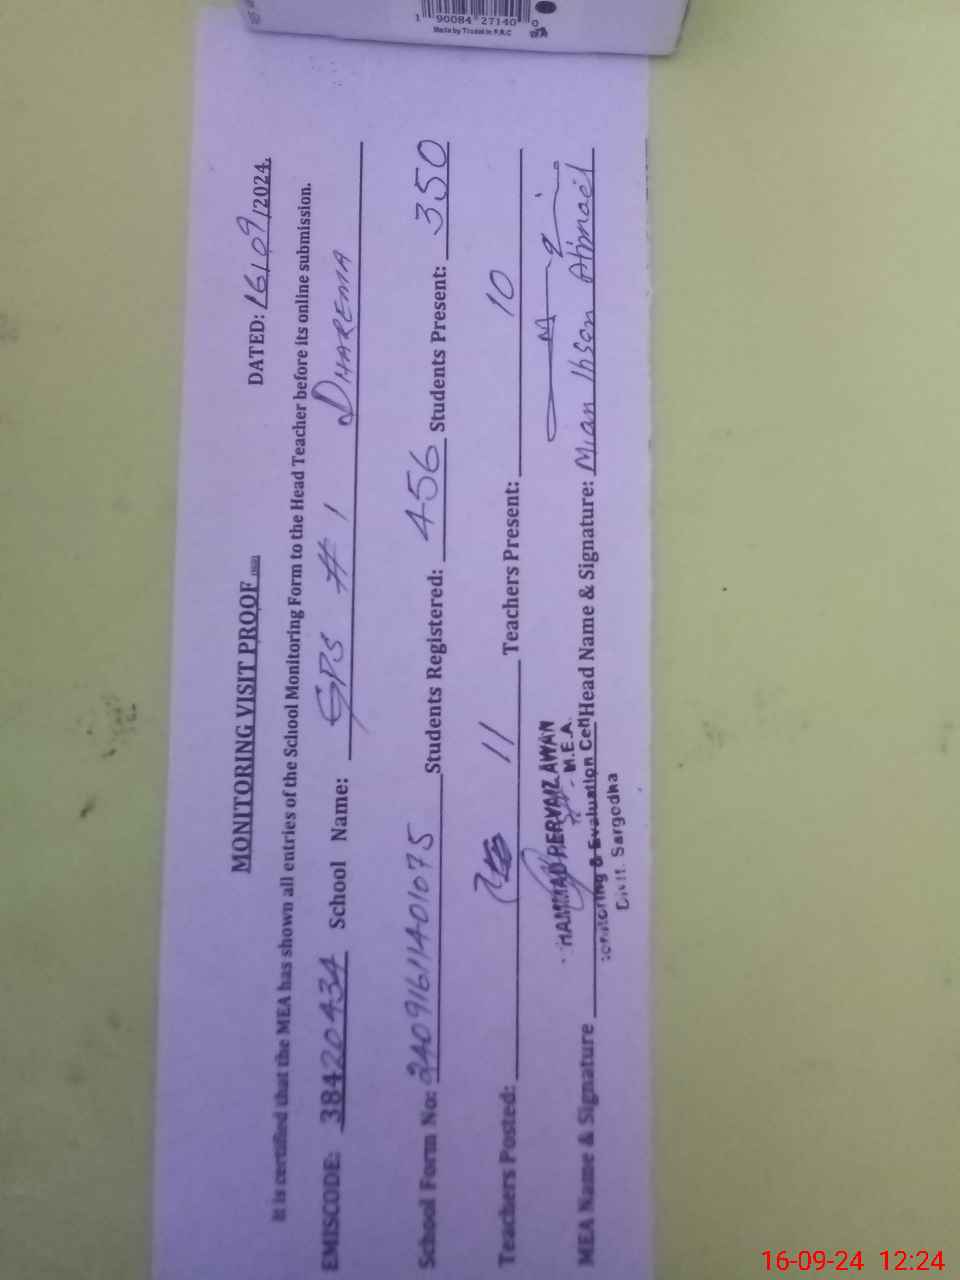 1 90084 27140 0
Made by Trodat in P.R.C
MONITORING VISIT PROOF
DATED: 16/09/2024.
It is certified that the MEA has shown all entries of the School Monitoring Form to the Head Teacher before its online submission.
EMISCODE: 38420434 School Name: GPS # 1 DHAREMA
School Form No: 24091611401075 Students Registered: 456 Students Present: 350
Teachers Posted: 11 Teachers Present: 10
HAMMAD PERVAIZ AWAN
M.E.A.
MEA Name & Signature Monitoring & Evaluation Cell Head Name & Signature: Mian Ihsan Ahmad
Distt. Sargodha
16-09-24 12:24